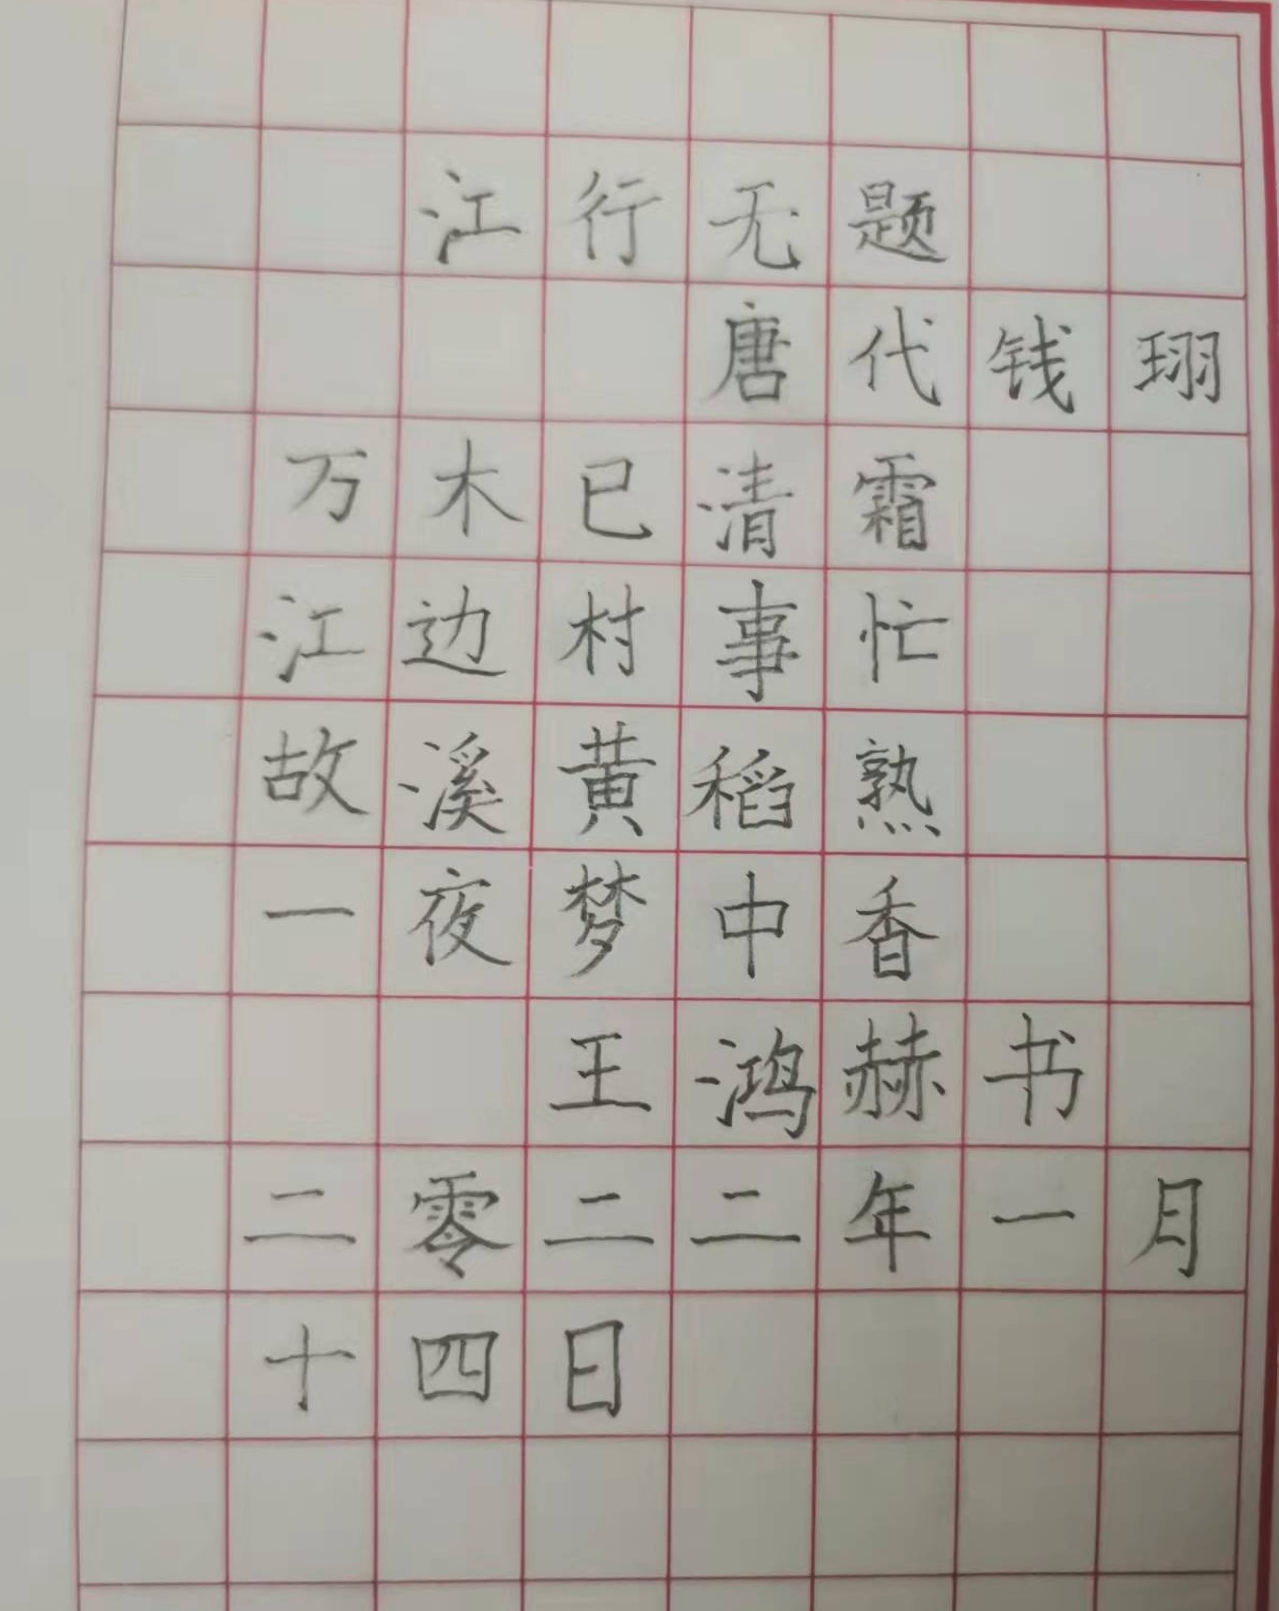 江行无题
唐代钱珝
万木已清霜
江边村事忙
故溪黄稻熟
一夜梦中香
王鸿赫书
二零二二年一月
十四日